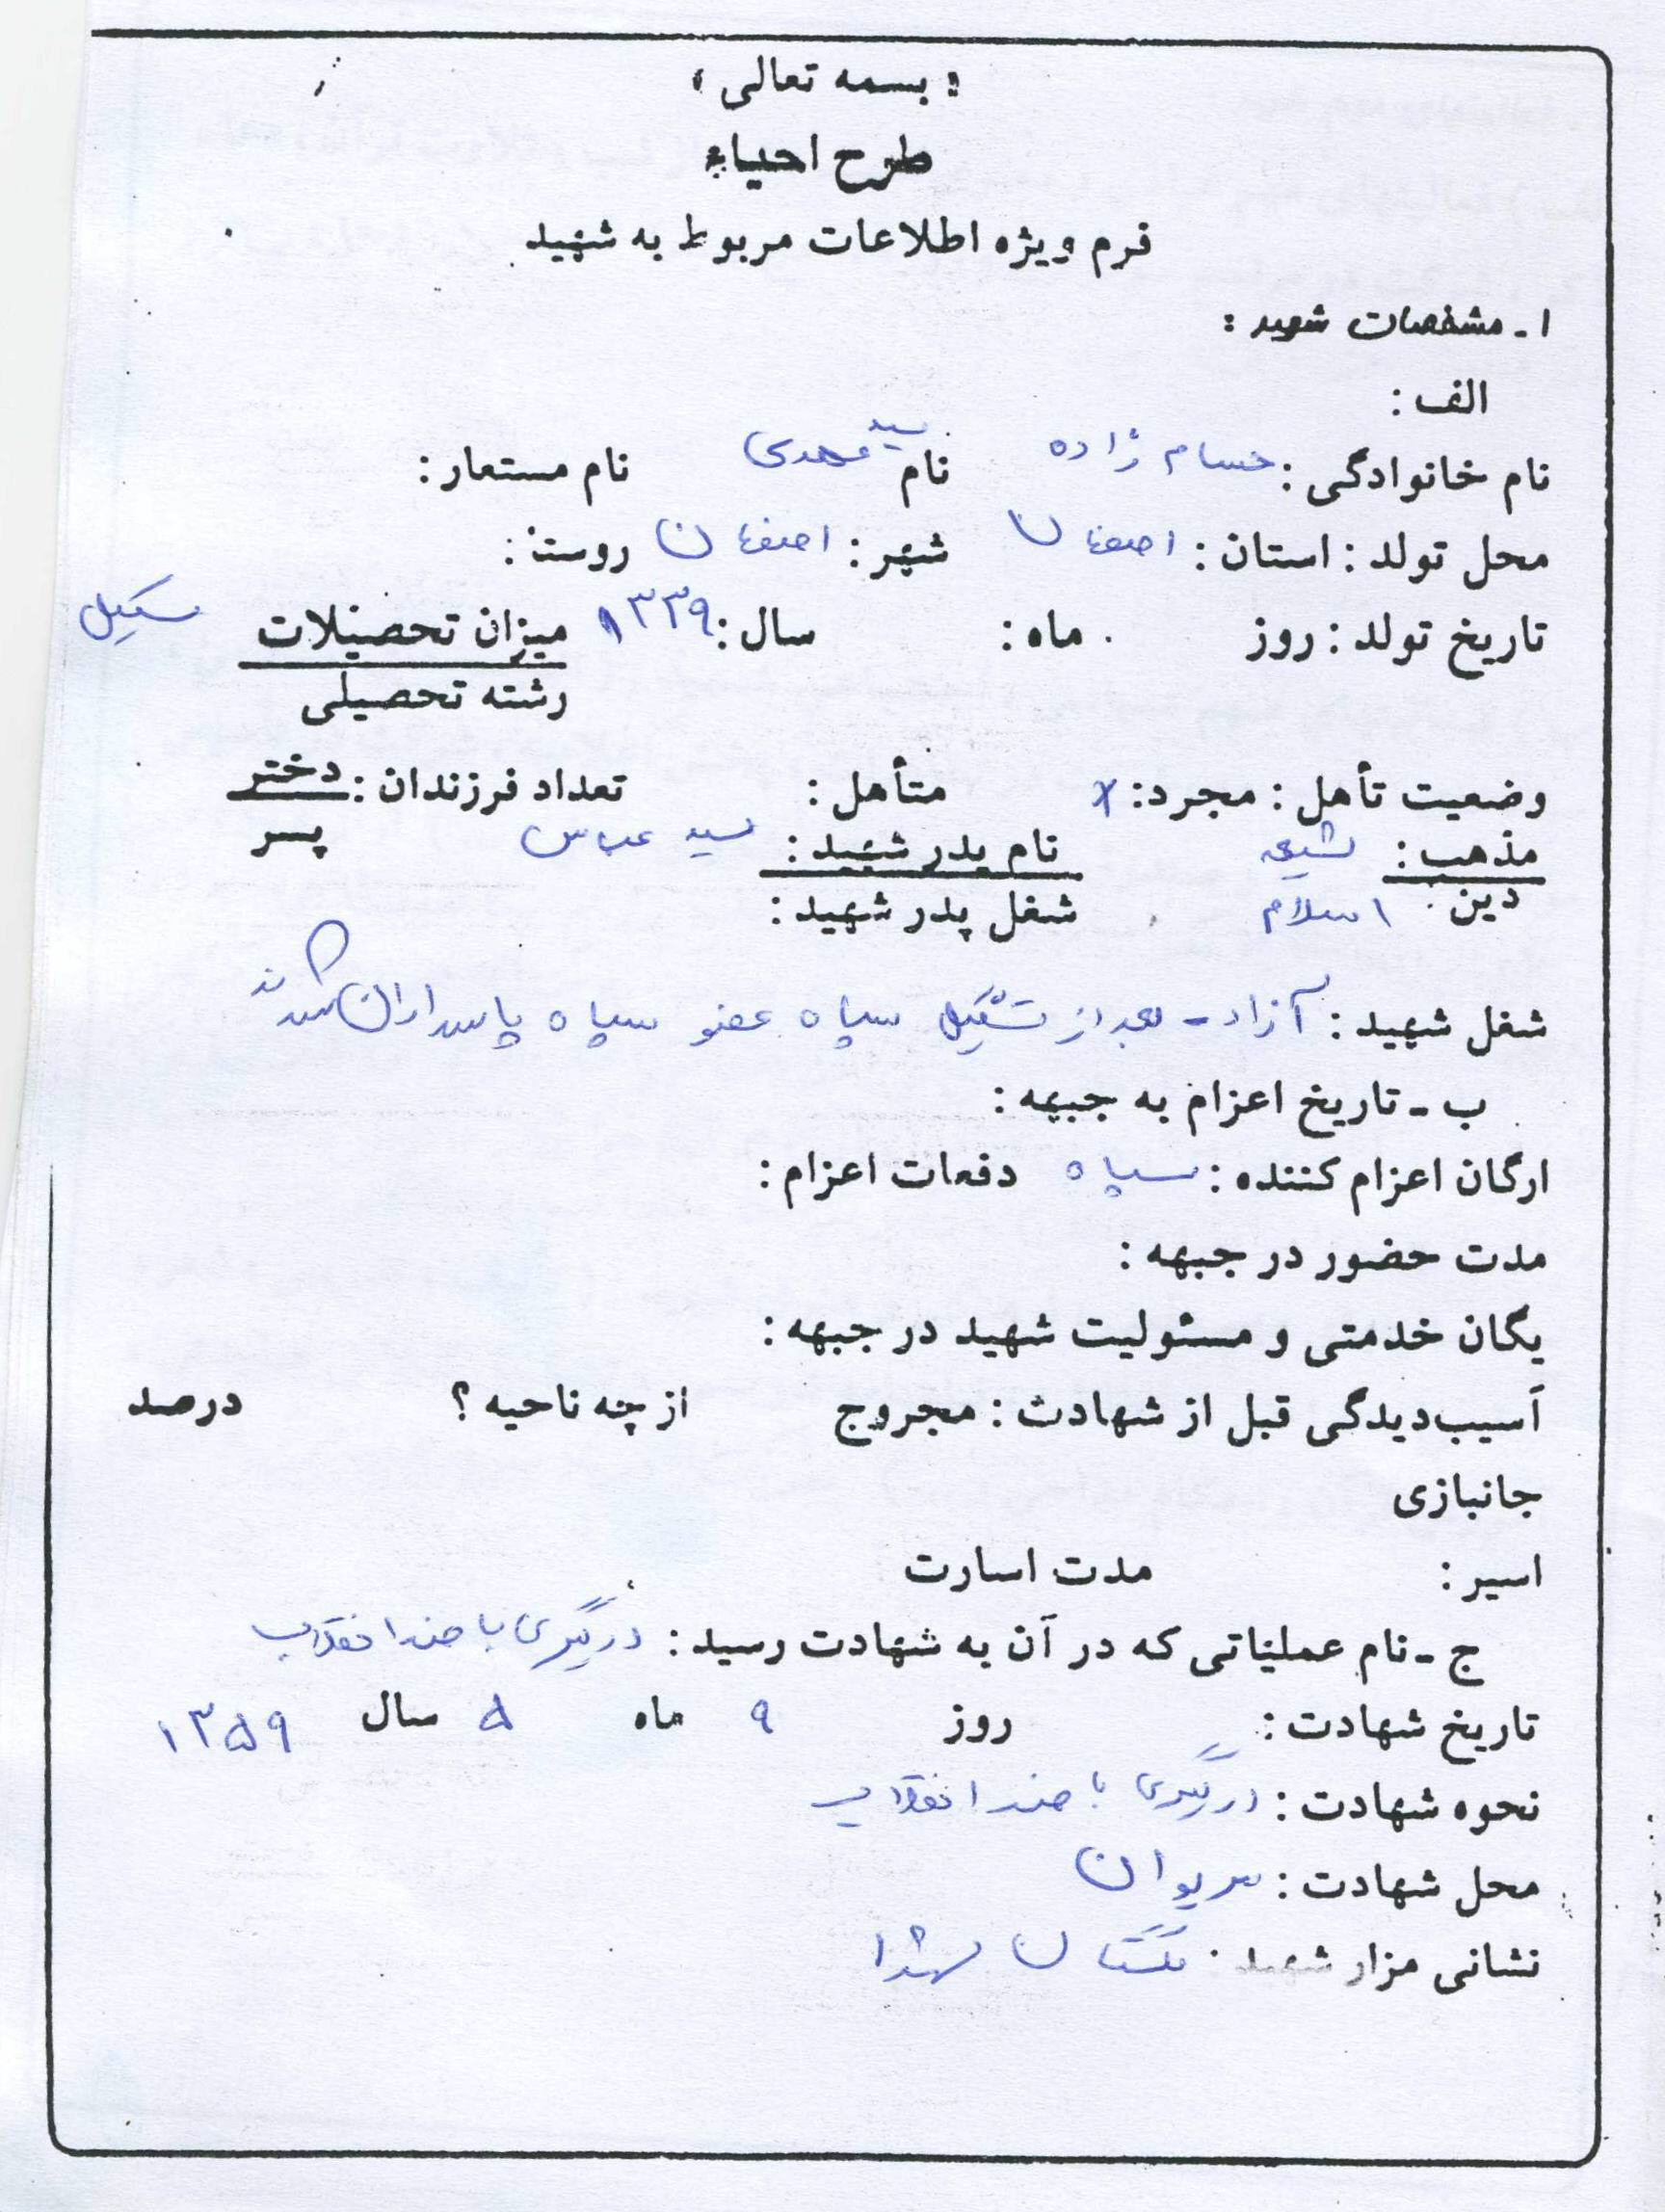 « بسمه تعالی »
طرح احیاء
فرم ویژه اطلاعات مربوط به شهید
۱ - مشخصات شهید :
الف :
نام خانوادگی : حسام زاده نام سید مهدی نام مستعار :
محل تولد : استان : اصفهان شهر : اصفهان روستا :
تاریخ تولد : روز ماه : سال : ۱۳۳۹ میزان تحصیلات سیکل
رشته تحصیلی
وضعیت تأهل : مجرد : x متأهل : تعداد فرزندان : دختر
پسر
مذهب : شیعه نام پدر شهید : سید عباس
دین : اسلام شغل پدر شهید :
شغل شهید : آزاد - بعد از تشکیل سپاه عضو سپاه پاسداران شدند
ب - تاریخ اعزام به جبهه :
ارگان اعزام کننده : سپاه دفعات اعزام :
مدت حضور در جبهه :
یگان خدمتی و مسئولیت شهید در جبهه :
آسیب‌دیدگی قبل از شهادت : مجروح از چه ناحیه ؟ درصد
جانبازی
اسیر : مدت اسارت
ج - نام عملیاتی که در آن به شهادت رسید : درگیری با ضد انقلاب
تاریخ شهادت : روز ۹ ماه ۵ سال ۱۳۵۹
نحوه شهادت : درگیری با ضد انقلاب
محل شهادت : مریوان
نشانی مزار شهید : گلستان شهدا